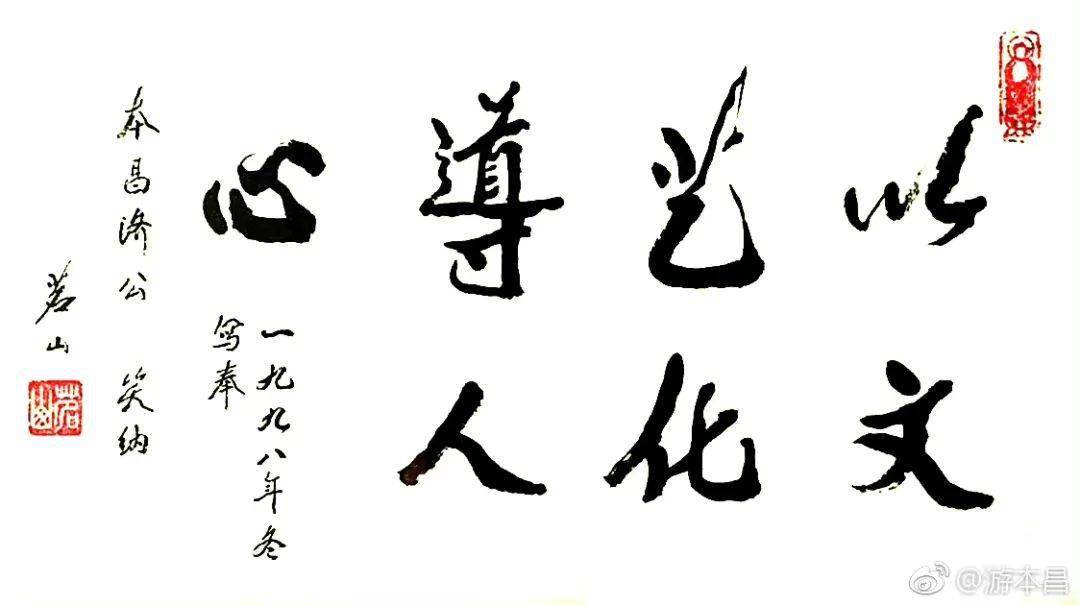 以文
艺化
導人
心
一九九八年冬
写奉
本昌济公 笑纳
茗山
茗山
@游本昌